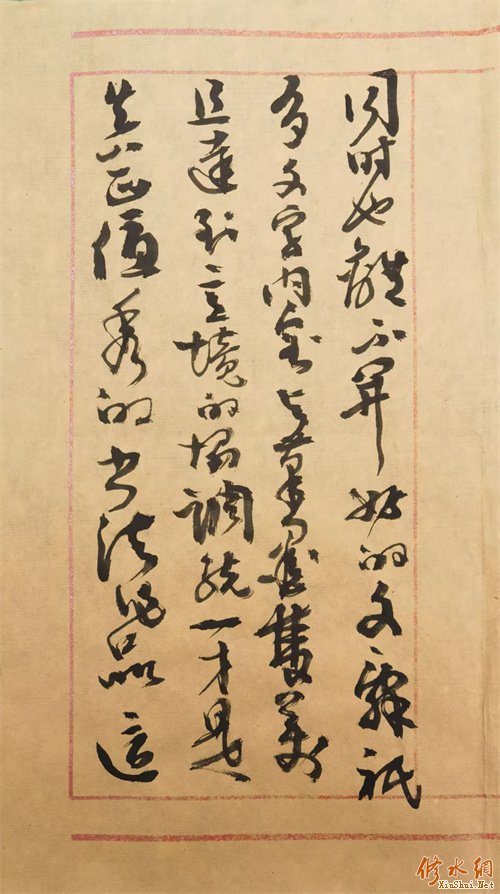 同时也離不開好的文辭祇
有文字内容与雙美
且達到意境的協調統一才是
真正優秀的书法作品這
修水網
XiuShui.Net